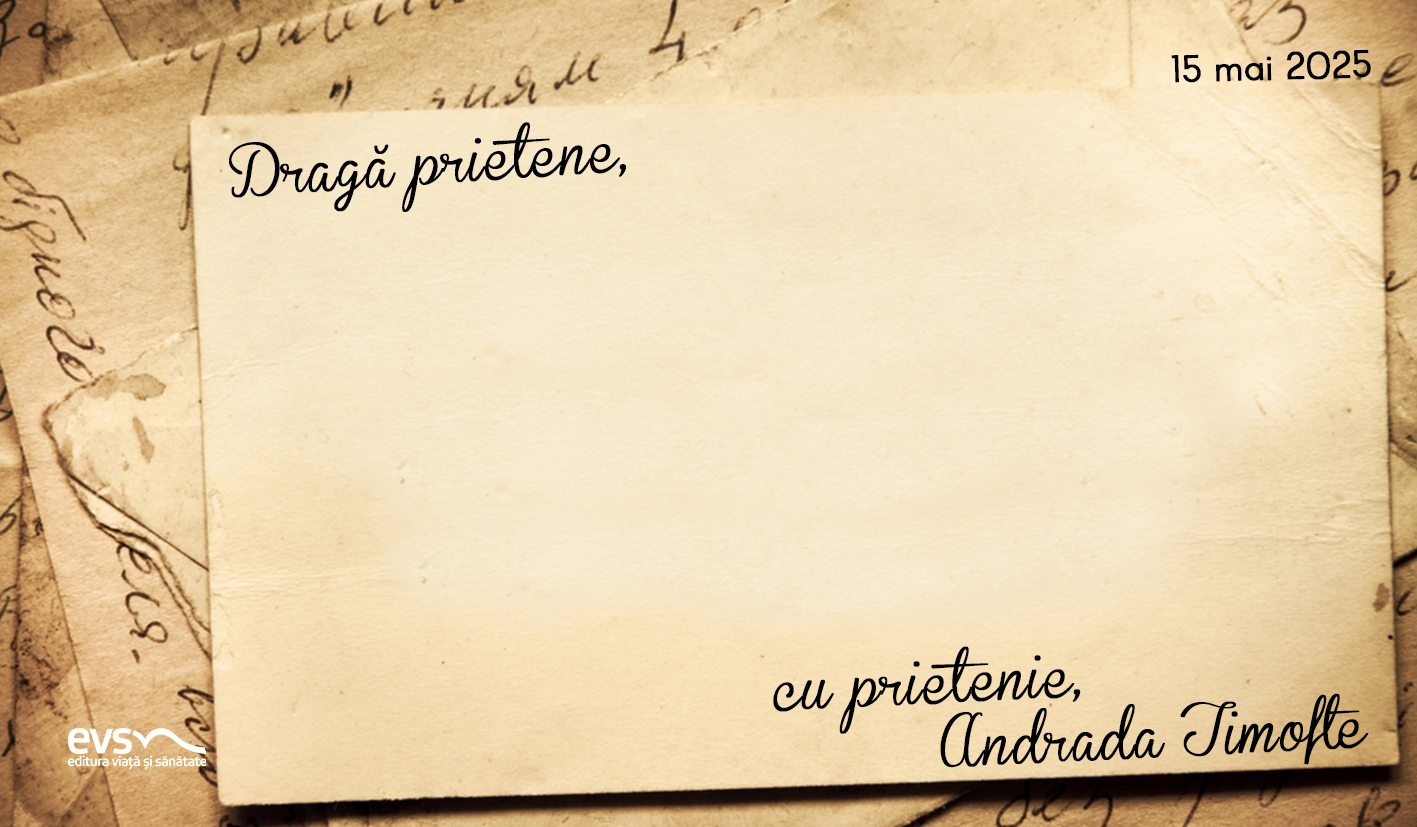 15 mai 2025
Dragă prietene,
cu prietenie,
Andrada Timofte
evs
editura viață și sănătate